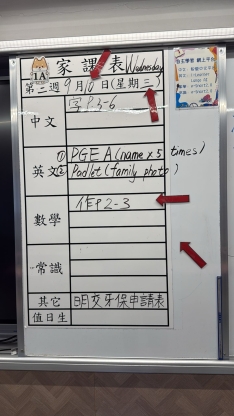 家課表
1A
Wednesday
第二週 9月10日(星期三)
中文 字P.3-6
英文 ① PGE A (name x 5 times)
② Padlet (family photo)
數學 作P.2-3
常識
其它 明交牙保申請表
值日生